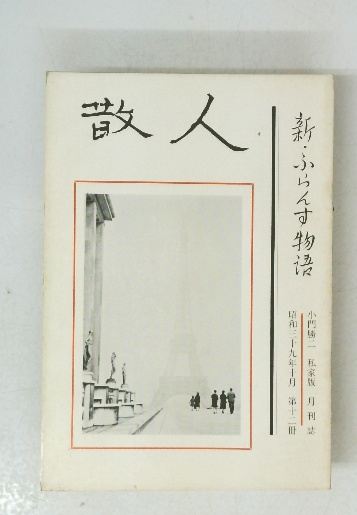 散人
新・ふらんす物語
小門勝二 私家版 月刊誌
昭和三十九年十月 第十二冊